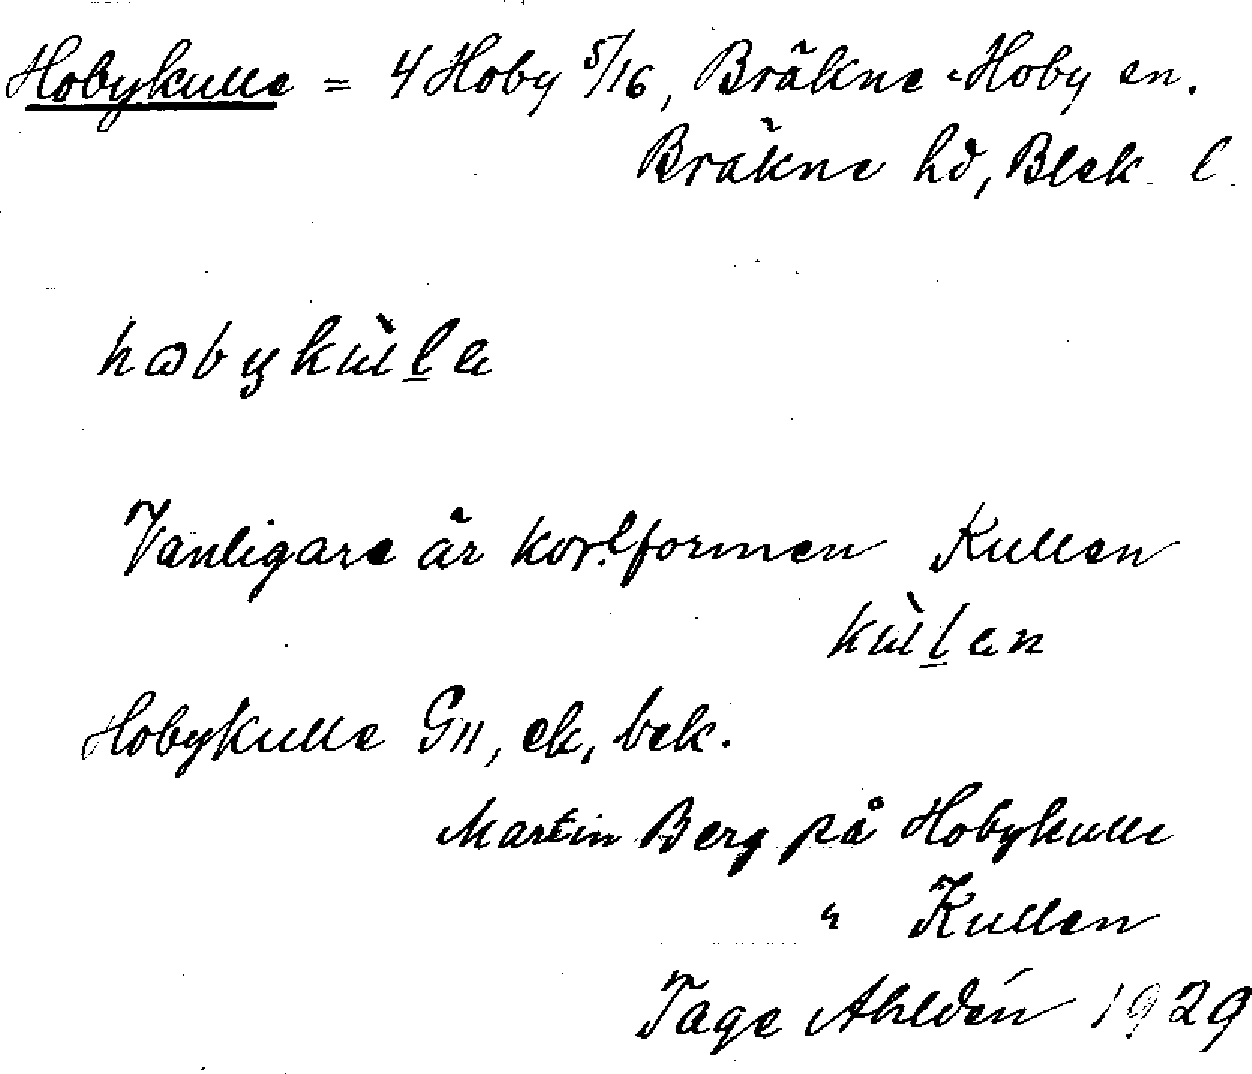 Hobykulle = 4 Hoby 5/16, Bräkne-Hoby sn.
Bräkne hd, Blek. l.
Vanligare är kortformen Kullen
Hobykulle G11, ek, bek.
Martin Berg på Hobykulle
" Kullen
Tage Ahldén 1929